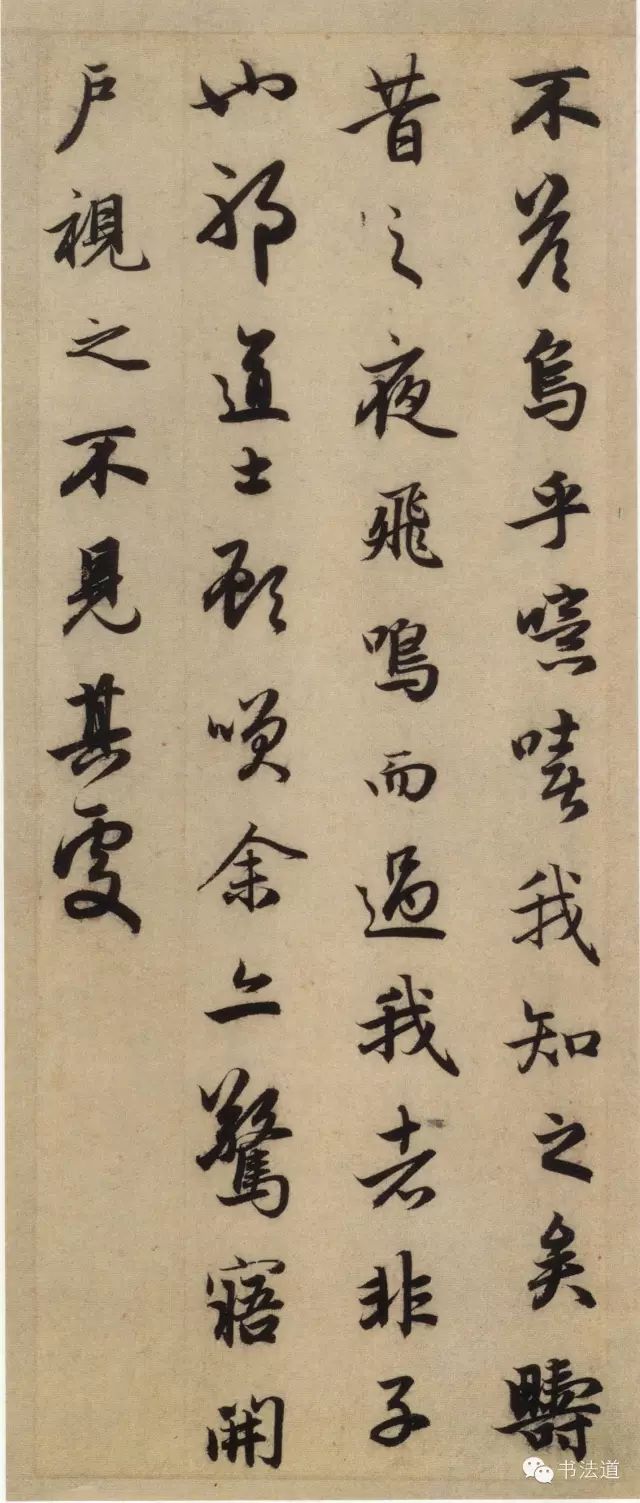 不答烏乎噫嘻我知之矣疇
昔之夜飛鳴而過我者非子
也邪道士顧笑余亦驚寤開
户視之不見其處
书法道